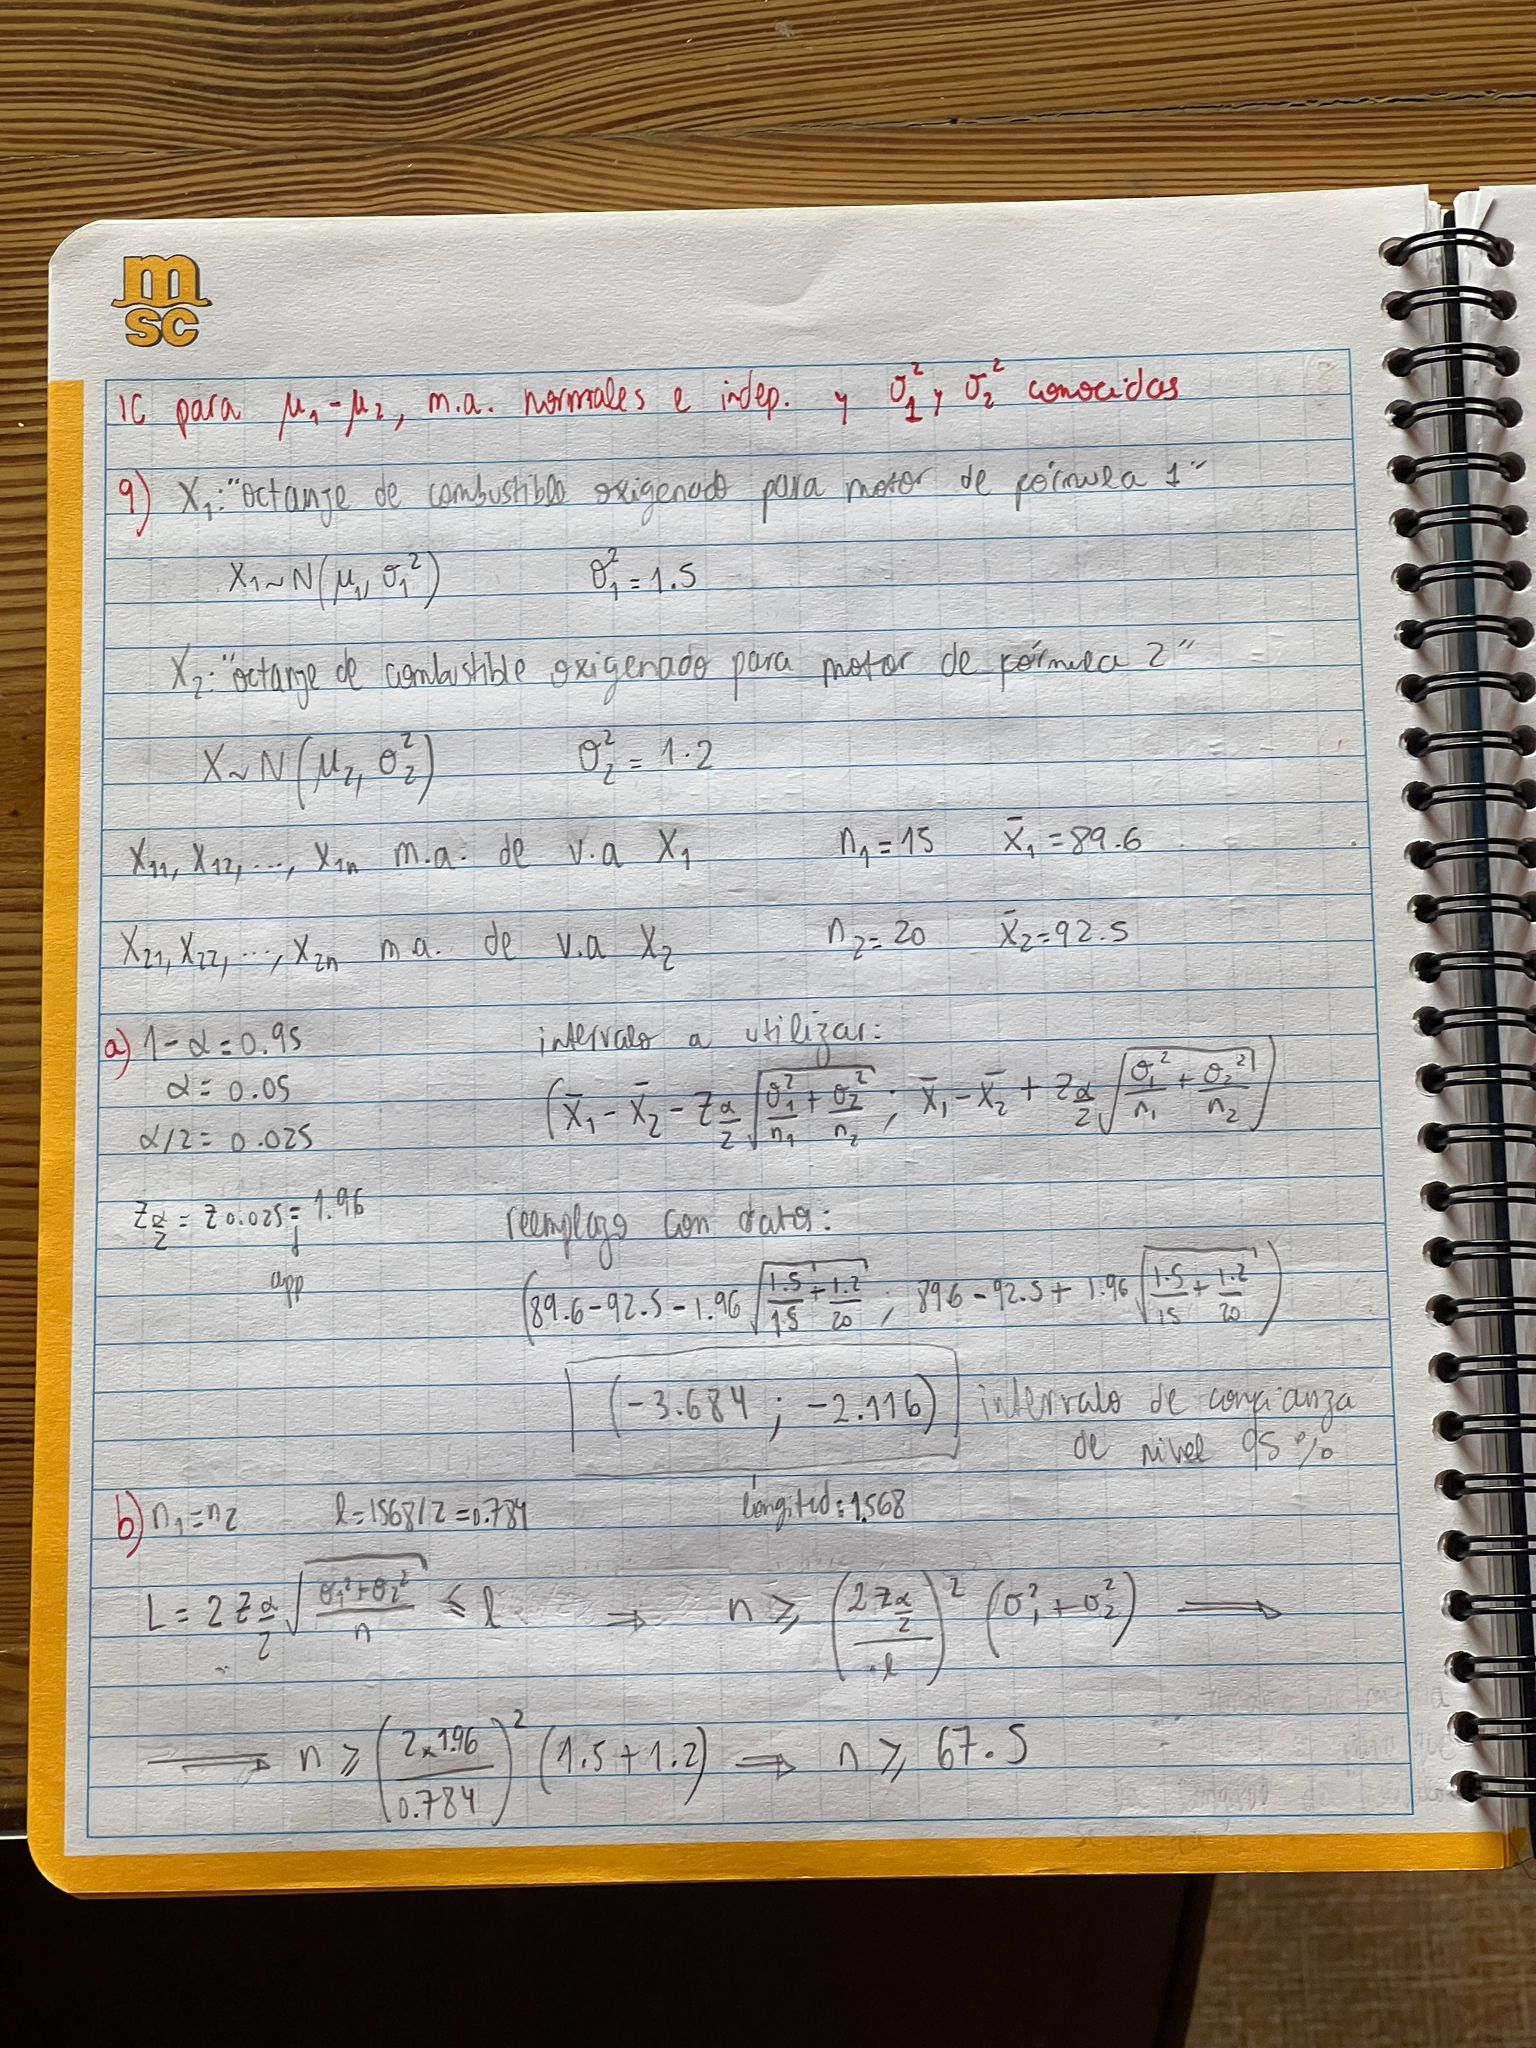 m
sc
IC para μ₁-μ₂, m.a. normales e indep. y σ₁² y σ₂² conocidas
9) X₁: "octanje de combustible oxigenado para motor de fórmula 1"
X₁~N(μ₁, σ₁²) σ₁² = 1.5
X₂: "octanje de combustible oxigenado para motor de fórmula 2"
X~N(μ₂, σ₂²) σ₂² = 1.2
X₁₁, X₁₂, ..., X₁ₙ m.a. de v.a X₁ n₁=15 X̄₁=89.6
X₂₁, X₂₂, ..., X₂ₙ m.a. de v.a X₂ n₂=20 X̄₂=92.5
a) 1-α=0.95 intervalo a utilizar:
α=0.05
(X̄₁ - X̄₂ - z_{α/2} √(σ₁²/n₁ + σ₂²/n₂) ; X̄₁ - X̄₂ + z_{α/2} √(σ₁²/n₁ + σ₂²/n₂))
α/2 = 0.025
z_{α/2} = z0.025 = 1.96 reemplazo con datos:
app
(89.6-92.5-1.96 √(1.5/15 + 1.2/20) ; 89.6-92.5+1.96 √(1.5/15 + 1.2/20))
(-3.684 ; -2.116) intervalo de confianza
de nivel 95%
b) n₁=n₂ l=1568/2=0.784 longitud: 1.568
L = 2 z_{α/2} √((σ₁²+σ₂²)/n) ≤ l ⇒ n ≥ (2 z_{α/2} / l)² (σ₁² + σ₂²) ⇒
⇒ n ≥ (2×1.96 / 0.784)² (1.5+1.2) ⇒ n ≥ 67.5